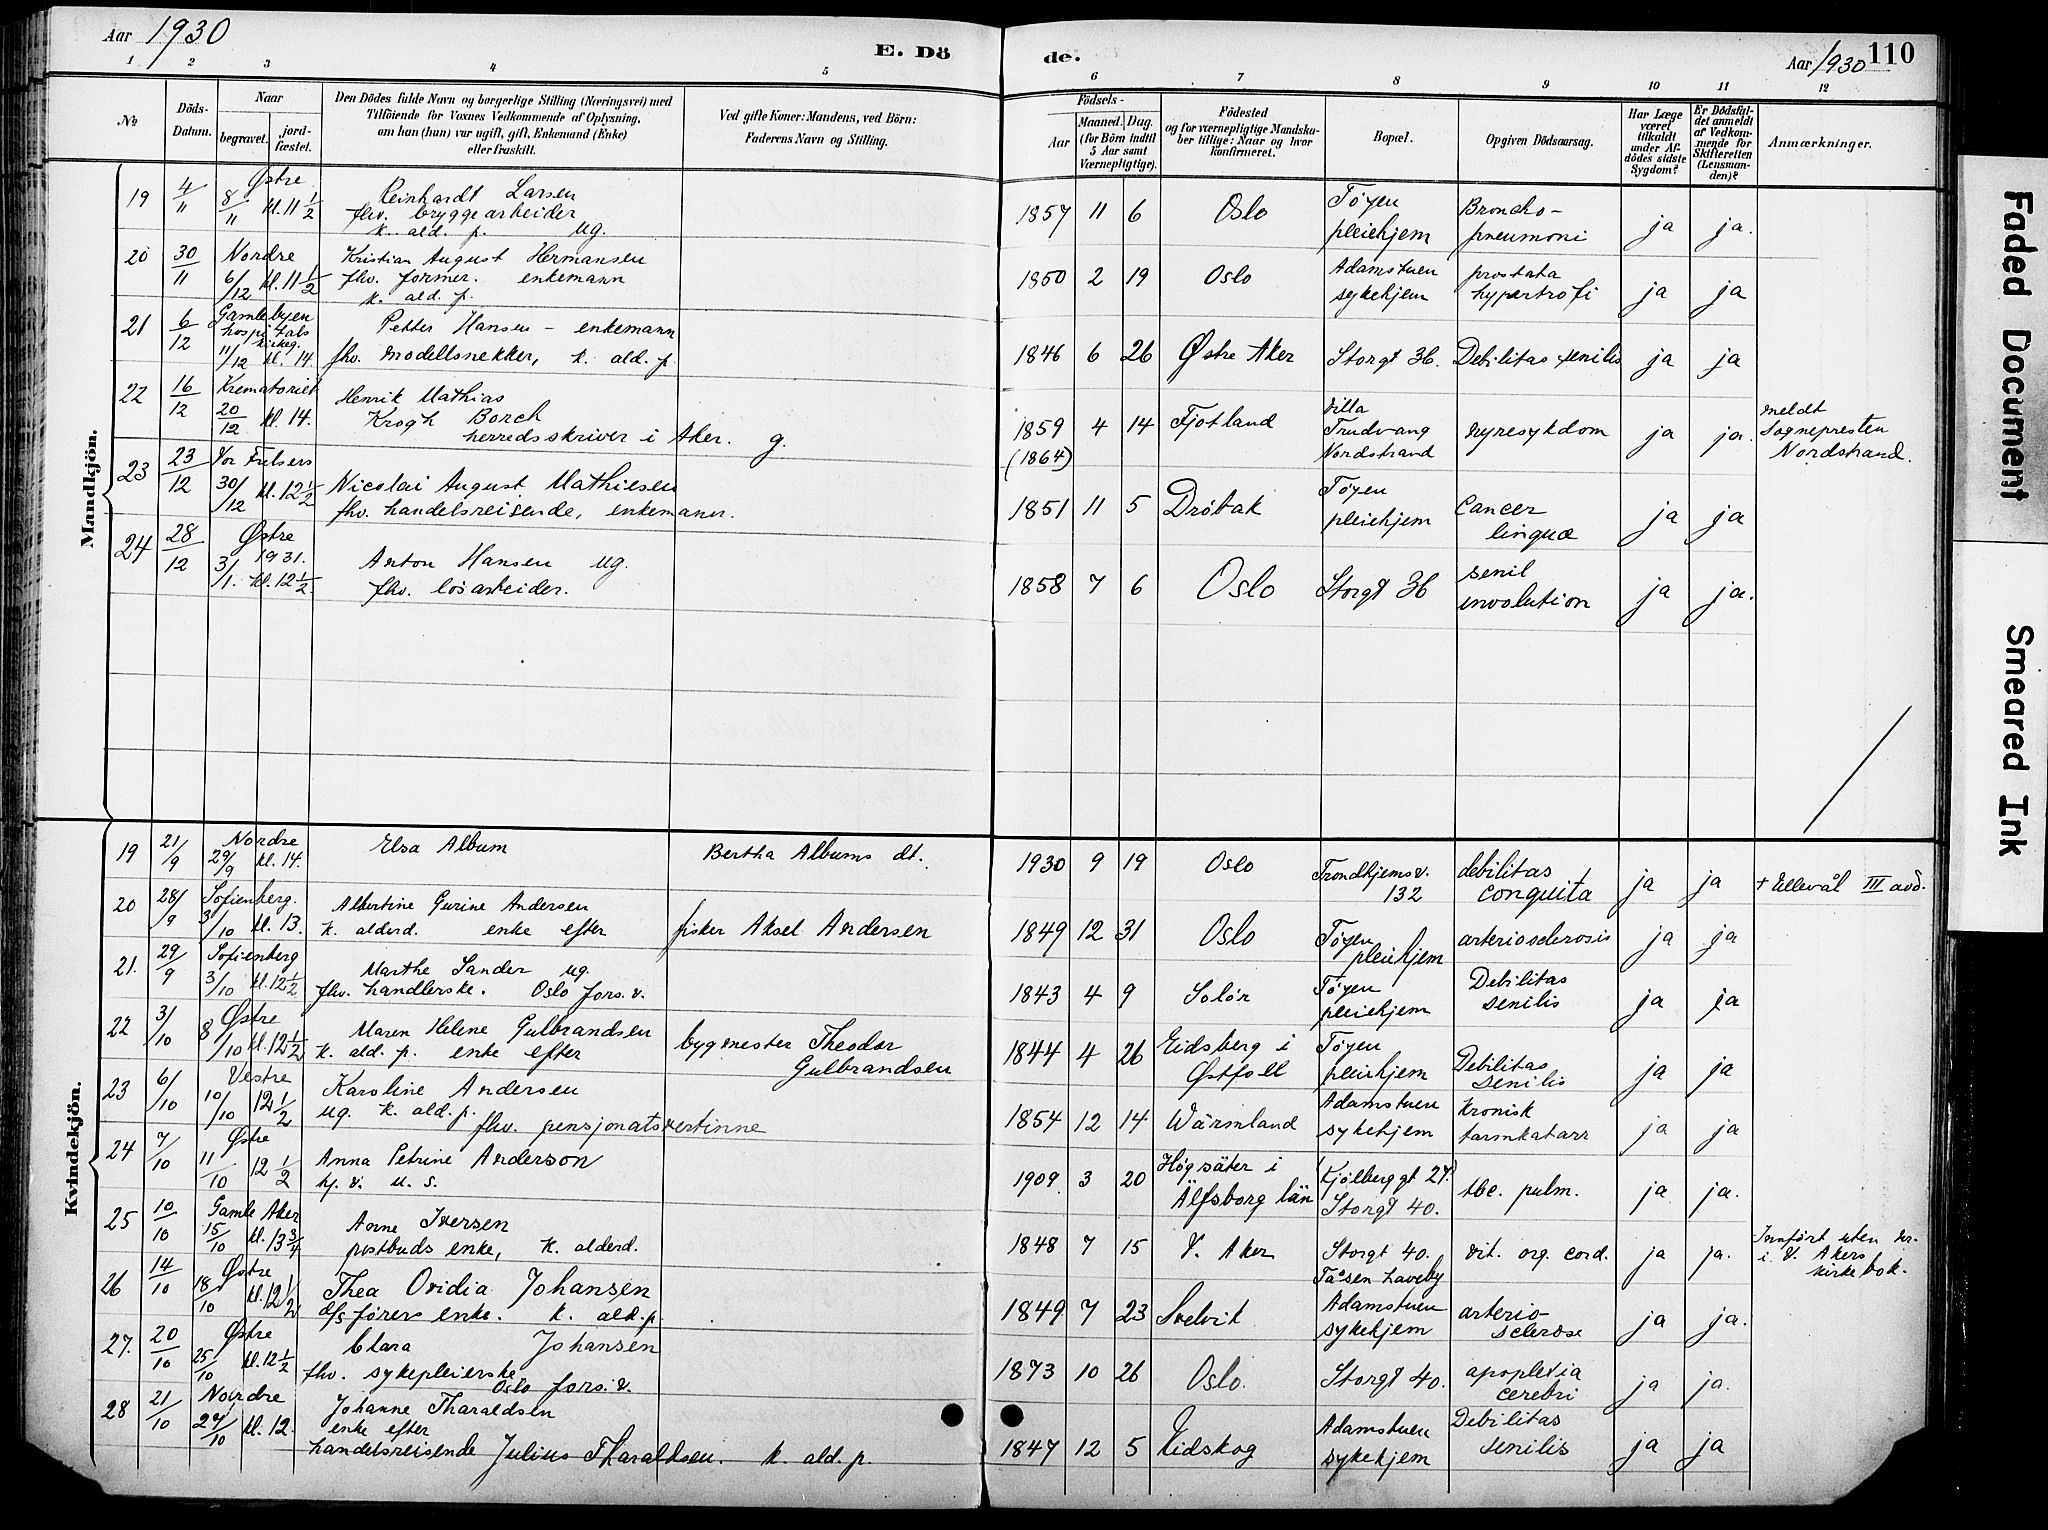 Aar 1930
E. Dö
de.
Aar 1930 110
1 2 3 4 5 6 7 8 9 10 11 12
№
Döds-Datum.
Naar
begravet.
jord-fæstet.
Den Dödes fulde Navn og borgerlige Stilling (Næringsvei) med
Tilföiende for Voxnes Vedkommende af Oplysning,
om han (hun) var ugift, gift, Enkemand (Enke)
eller fraskilt.
Ved gifte Koner: Mandens, ved Börn:
Faderens Navn og Stilling.
Födsels-
Aar
Maaned. Dag.
(for Börn indtil
5 Aar samt
Værnepligtige).
Födested
og for værnepligtige Mandska-
ber tillige: Naar og hvor
konfirmeret.
Bopæl.
Opgiven Dödsaarsag.
Har Læge
været
tilkaldt
under Af-
dödes sidste
Sygdom?
Er Dödsfal-
det anmeldt
af Vedkom-
mende for
Skifteretten
(Lensman-
den)?
Anmærkninger.
Mandkjön.
19 4/11 Østre 8/11 kl. 11 1/2 Reinhardt Larsen
fhv. bryggearbeider
k. ald. p. ug.
1857 11 6 Oslo Tøyen pleiehjem Broncho-pneumoni ja ja.
20 30/11 Nordre 6/12 kl. 11 1/2 Kristian August Hermansen
fhv. former. enkemann
k. ald. p.
1850 2 19 Oslo Adamstuen sykehjem prostata hypertrofi ja ja
21 6/12 Gamlebyen hospitals kirkeg. 11/12 kl. 14. Petter Hansen - enkemann
fhv. modellsnekker, k. ald. p.
1846 6 26 Østre Aker Storgt 36. Debilitas senilis ja ja
22 16/12 Krematoriet 20/12 kl. 14. Henrik Mathias
Krogh Borch
herredsskriver i Aker. g.
1859 (1864) 4 14 Fjotland Villa Trudvang Nordstrand nyresykdom ja ja. meldt Sognepresten Nordstrand.
23 23/12 Vor Frelsers 30/12 kl. 12 1/2 Nicolai August Mathiesen
fhv. handelsreisende, enkemann.
1851 11 5 Drøbak Tøyen pleiehjem Cancer linguæ ja ja
24 28/12 Østre 1931. 3/1. kl. 12 1/2. Anton Hansen ug.
fhv. løsarbeider.
1858 7 6 Oslo Storgt 36 senil involution ja ja.
Kvindekjön.
19 21/9 Nordre 29/9 kl. 14. Elsa Album
Bertha Albums dt.
1930 9 19 Oslo Trondhjemsv. 132 debilitas conquita ja ja + Ullevål III avd.
20 28/9 Sofienberg. 3/10 kl. 13. Albertine Gurine Andersen
k. alderd. enke efter fisker Aksel Andersen
1849 12 31 Oslo Tøyen pleiehjem arteriosclerosis ja ja
21. 29/9 Sofienberg 3/10 kl. 12 1/2 Marthe Sander ug.
fhv. handlerske. Oslo fors. v.
1843 4 9 Solør Tøyen pleiehjem Debilitas senilis ja ja
22 3/10 Østre 8/10 kl. 12 1/2 Maren Helene Gulbrandsen
k. ald. p. enke efter bygmester Theodor Gulbrandsen
1844 4 26 Eidsberg i Østfoll Tøyen pleiehjem Debilitas senilis ja ja
23 6/10 Vestre 10/10 12 1/2 Karoline Andersen
ug. k. ald. p. fhv. pensjonatsvertinne
1854 12 14 Wärmland Adamstuen sykehjem kronisk tarmkatarr ja ja
24 7/10 Østre 11/10 12 1/2 Anna Petrine Anderson
hj. v. u. s.
1909. 3 20 Högsäter i Älfsborg län (Kjølberggt 27.) Storgt 40. tbc. pulm. ja ja.
25 10/10 Gamle Aker 15/10 kl. 13 3/4 Anne Iversen
postbuds enke, k. alderd.
1848 7 15 V. Aker Storgt 40. Tåsen haveby vit. org. cord. ja ja. Innført uten nr. i V. Akers kirkebok.
26 14/10 Østre 18/10 kl. 12 1/2 Thea Ovidia Johansen
d/s førers enke. k. ald. p.
1849 7 23 Svelvik Adamstuen sykehjem arterio-sclerose ja ja.
27. 20/10 Østre 25/10 kl. 12 1/2 Clara Johansen
fhv. sykepleierske
Oslo fors. v.
1873 10 26 Oslo. Storgt 40. apoplexia cerebri ja ja.
28 21/10 Nordre 27/10 kl. 12. Johanne Tharaldsen
enke efter
handelsreisende Julius Tharaldsen. k. ald. p.
1847 12 5 Eidskog Adamstuen sykehjem Debilitas senilis ja ja
Faded Document
Smeared Ink